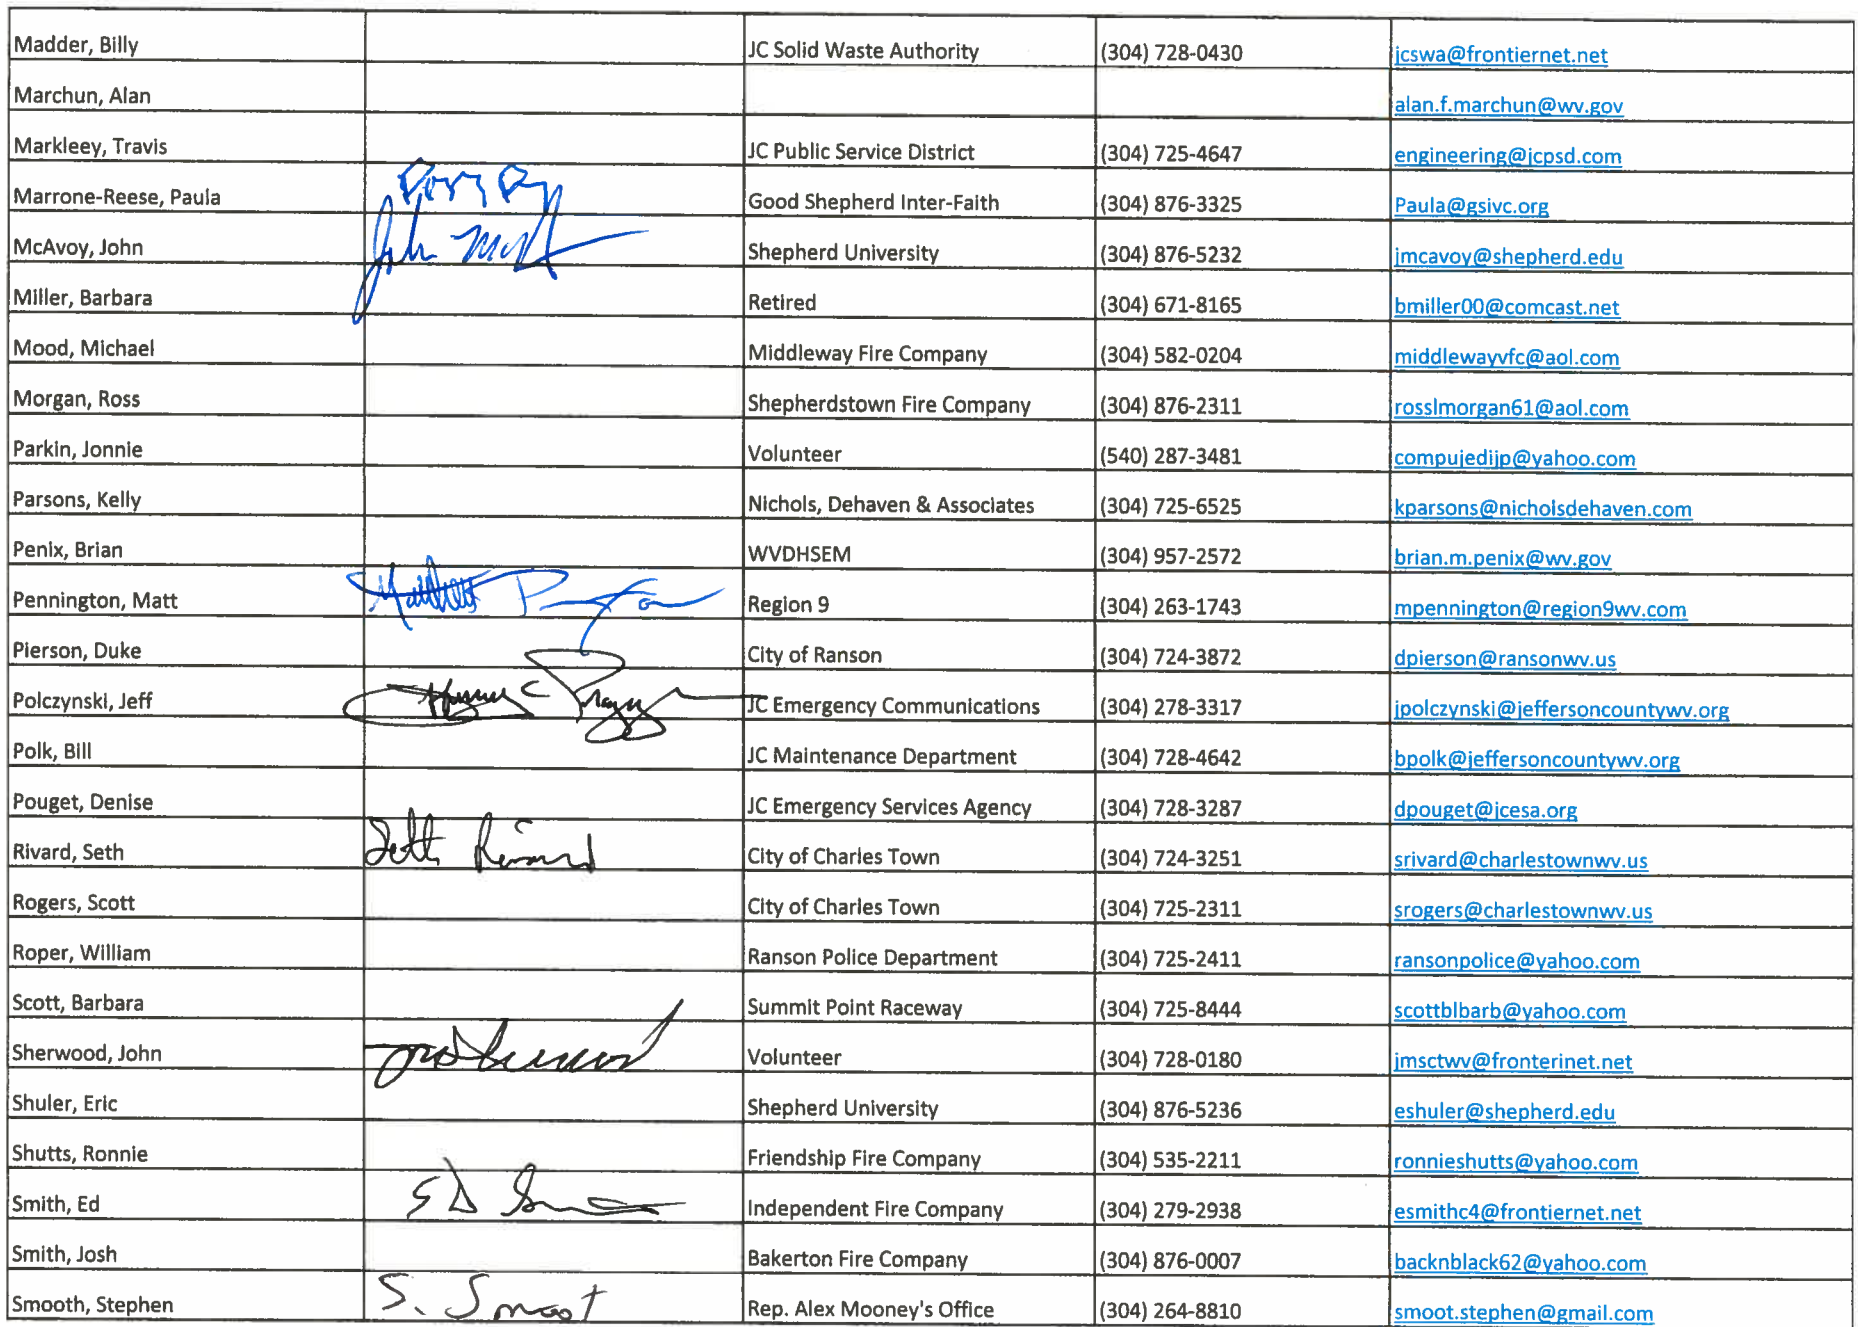 Madder, Billy JC Solid Waste Authority (304) 728-0430 jcswa@frontiernet.net
Marchun, Alan alan.f.marchun@wv.gov
Markleey, Travis JC Public Service District (304) 725-4647 engineering@jcpsd.com
Marrone-Reese, Paula Good Shepherd Inter-Faith (304) 876-3325 Paula@gsivc.org
McAvoy, John John Good Shepherd University (304) 876-5232 jmcavoy@shepherd.edu
Miller, Barbara Retired (304) 671-8165 bmiller00@comcast.net
Mood, Michael Middleway Fire Company (304) 582-0204 middlewayvfc@aol.com
Morgan, Ross Shepherdstown Fire Company (304) 876-2311 rosslmorgan61@aol.com
Parkin, Jonnie Volunteer (540) 287-3481 compujedijp@yahoo.com
Parsons, Kelly Nichols, Dehaven & Associates (304) 725-6525 kparsons@nicholsdehaven.com
Penix, Brian WVDHSEM (304) 957-2572 brian.m.penix@wv.gov
Pennington, Matt Matthew Region 9 (304) 263-1743 mpennington@region9wv.com
Pierson, Duke City of Ranson (304) 724-3872 dpierson@ransonwv.us
Polczynski, Jeff JC Emergency Communications (304) 278-3317 jpolczynski@jeffersoncountywv.org
Polk, Bill JC Maintenance Department (304) 728-4642 bpolk@jeffersoncountywv.org
Pouget, Denise JC Emergency Services Agency (304) 728-3287 dpouget@jcesa.org
Rivard, Seth Seth Rivard City of Charles Town (304) 724-3251 srivard@charlestownwv.us
Rogers, Scott City of Charles Town (304) 725-2311 srogers@charlestownwv.us
Roper, William Ranson Police Department (304) 725-2411 ransonpolice@yahoo.com
Scott, Barbara Summit Point Raceway (304) 725-8444 scottblbarb@yahoo.com
Sherwood, John Volunteer (304) 728-0180 jmsctwv@fronterinet.net
Shuler, Eric Shepherd University (304) 876-5236 eshuler@shepherd.edu
Shutts, Ronnie Friendship Fire Company (304) 535-2211 ronnieshutts@yahoo.com
Smith, Ed Independent Fire Company (304) 279-2938 esmithc4@frontiernet.net
Smith, Josh Bakerton Fire Company (304) 876-0007 backnblack62@yahoo.com
Smooth, Stephen S. Smoot Rep. Alex Mooney's Office (304) 264-8810 smoot.stephen@gmail.com